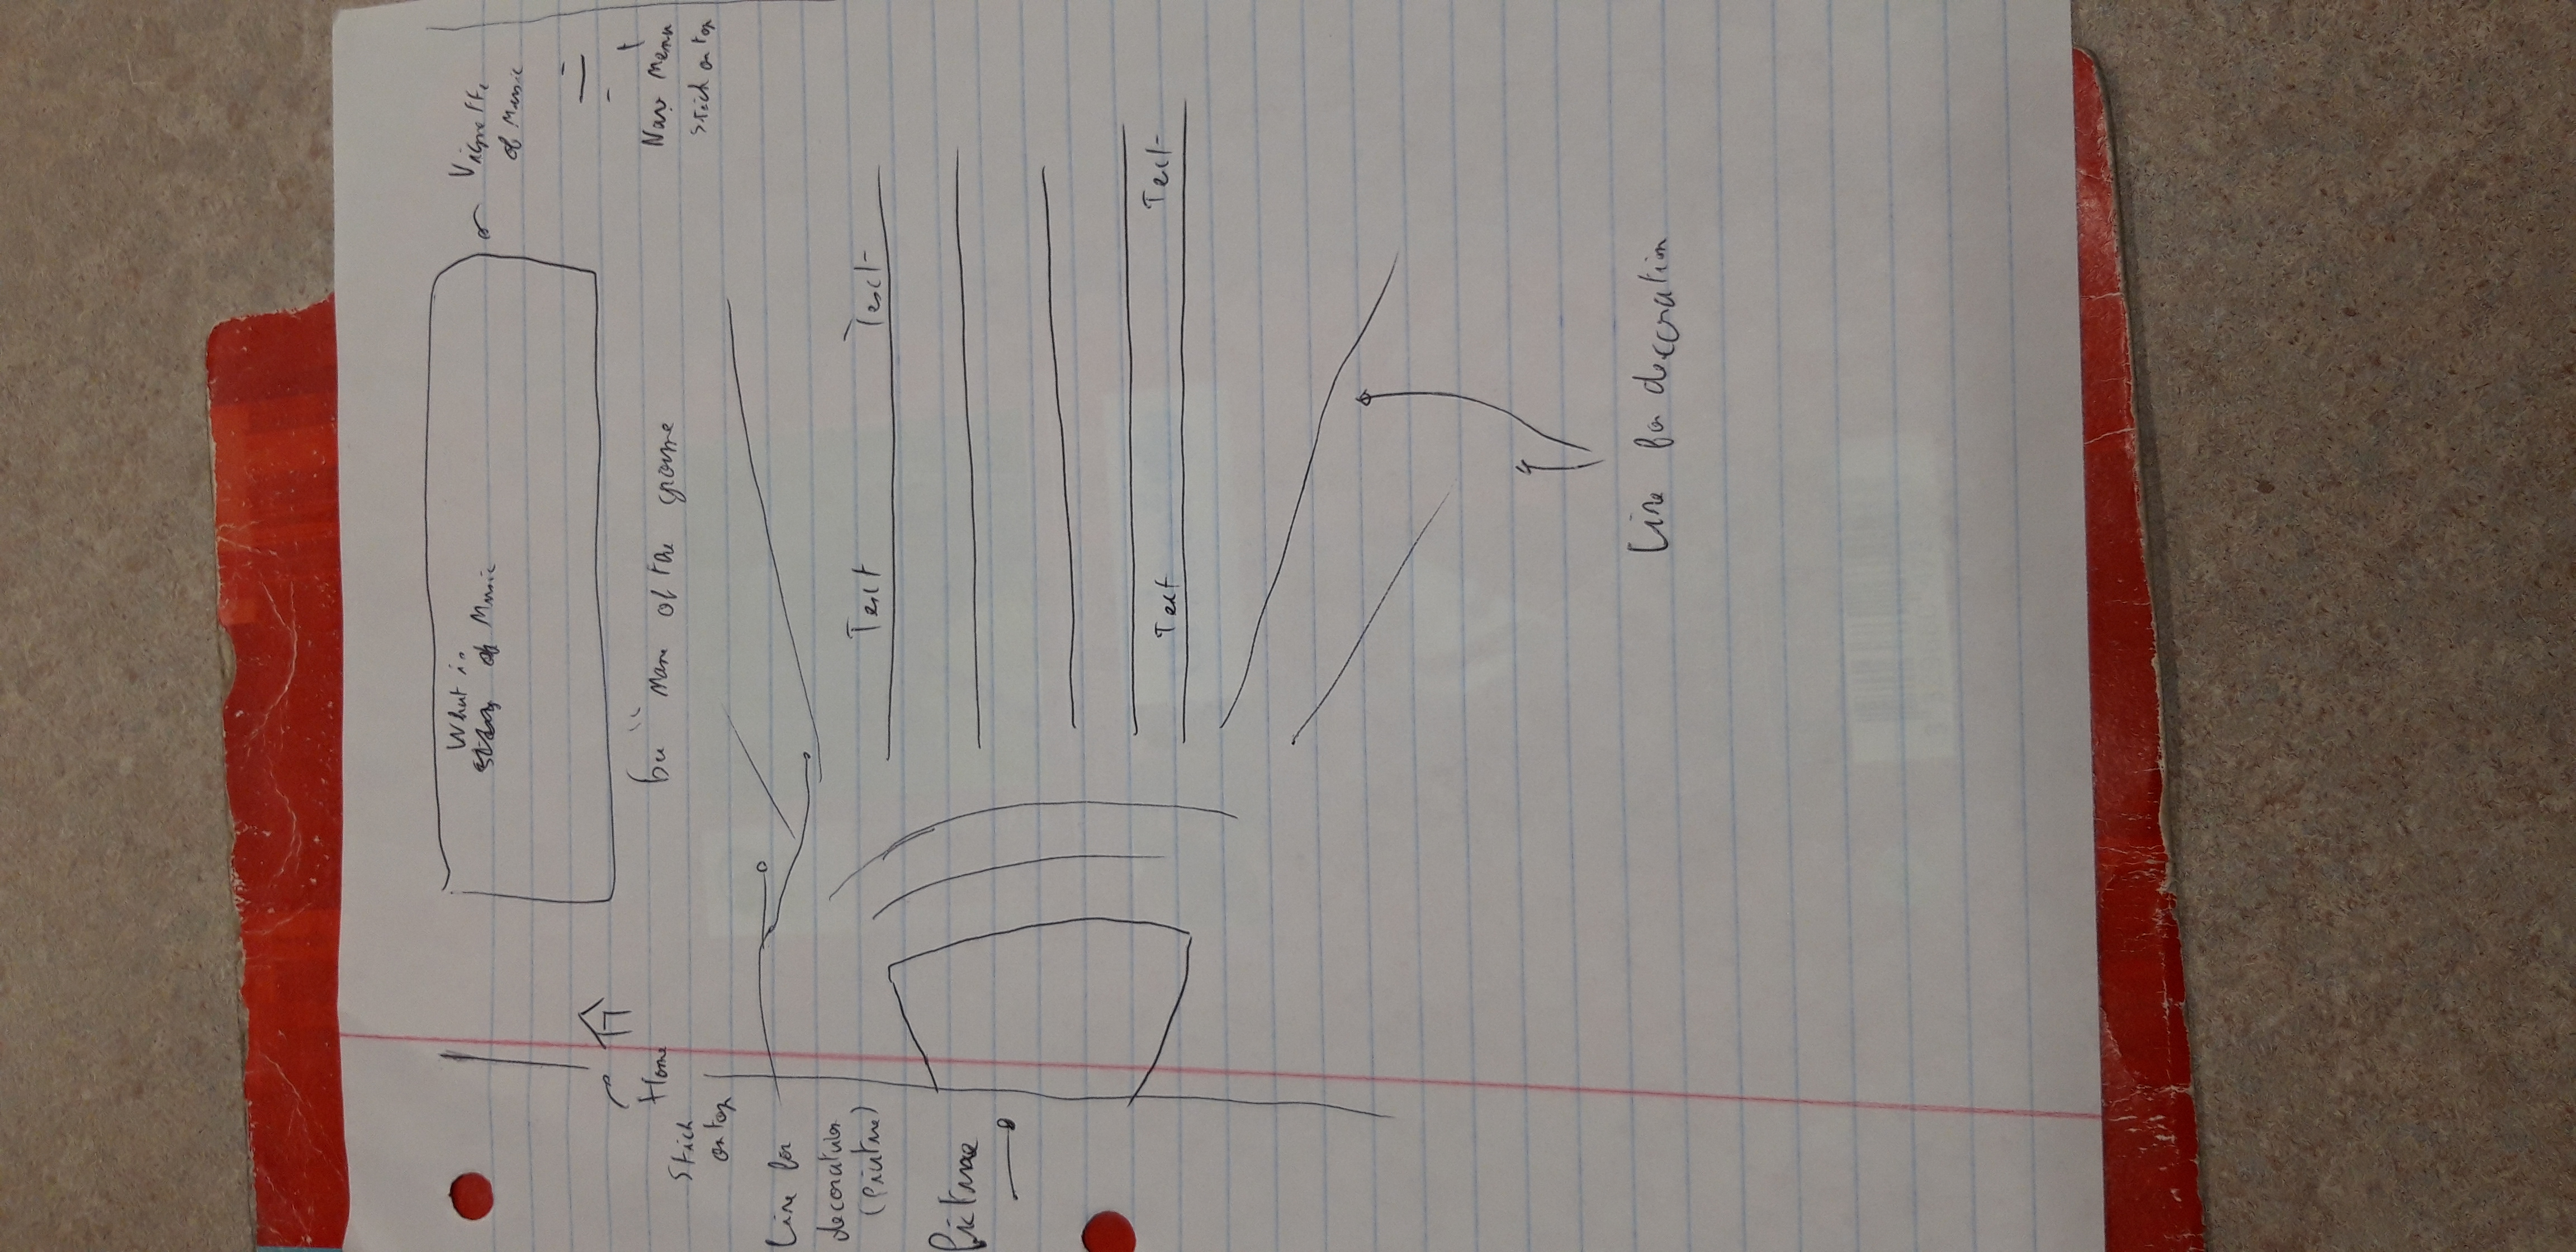 What is
of Music
Vignette
of Music
Home
Stick
on top
Name of the
Nav Menu
Stick on top
Line for
decoration
(Picture)
Text Text
Picture
Text Text
Line for decoration